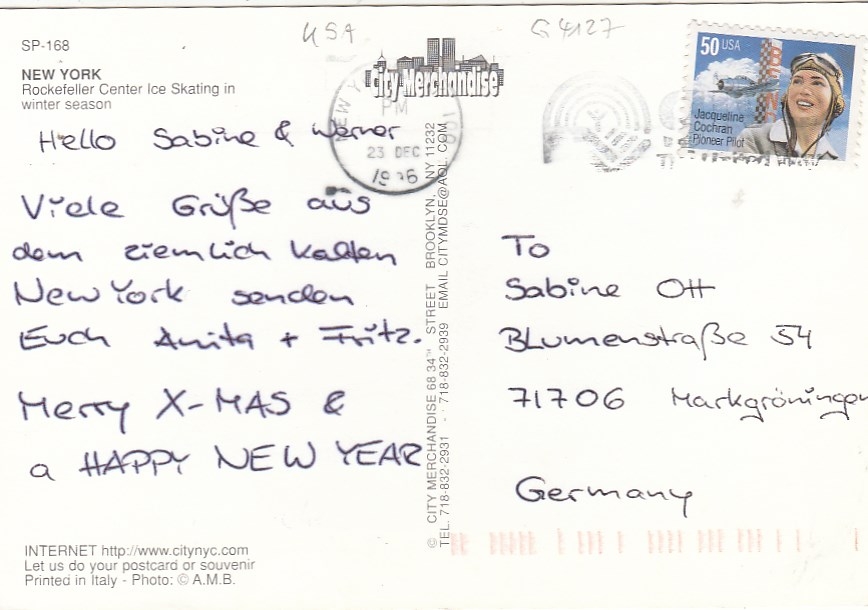 USA
G 4127
SP-168
NEW YORK
Rockefeller Center Ice Skating in
winter season
City Merchandise
NEW Y
PM
23 DEC
50 USA
Jacqueline
Cochran
Pioneer Pilot
Hello Sabine & Werner
Viele Grüße aus
dem ziemlich kalten
New York senden
Euch Anita + Fritz.
Merry X-MAS &
a HAPPY NEW YEAR
© CITY MERCHANDISE 68 34TH STREET BROOKLYN, NY 11232
TEL. 718-832-2931 - 718-832-2939 EMAIL CITYMDSE@AOL.COM
To
Sabine Ott
Blumenstraße 54
71706 Markgröningen
Germany
INTERNET http://www.citynyc.com
Let us do your postcard or souvenir
Printed in Italy - Photo: © A.M.B.